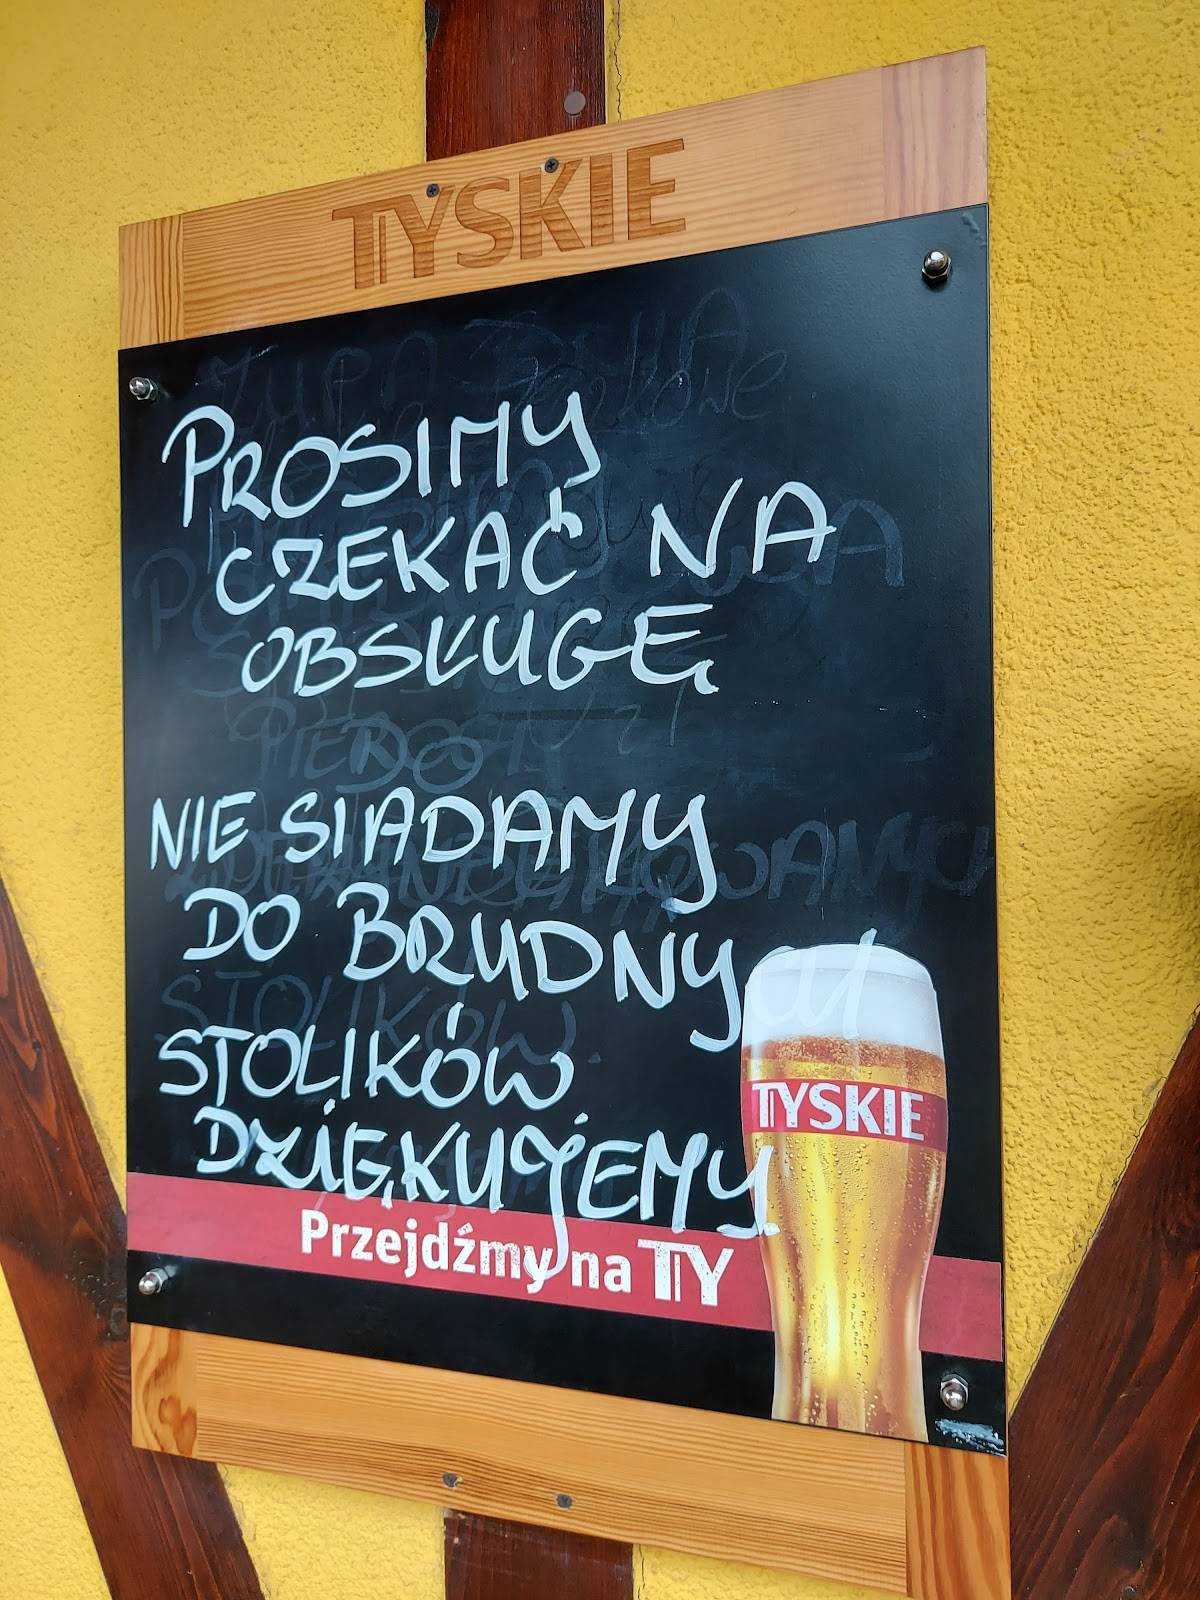 TYSKIE
PROSIMY
CZEKAĆ NA
OBSŁUGĘ
NIE SIADAMY
DO BRUDNYCH
STOLIKÓW.
DZIĘKUJEMY.
TYSKIE
Przejdźmy na TY